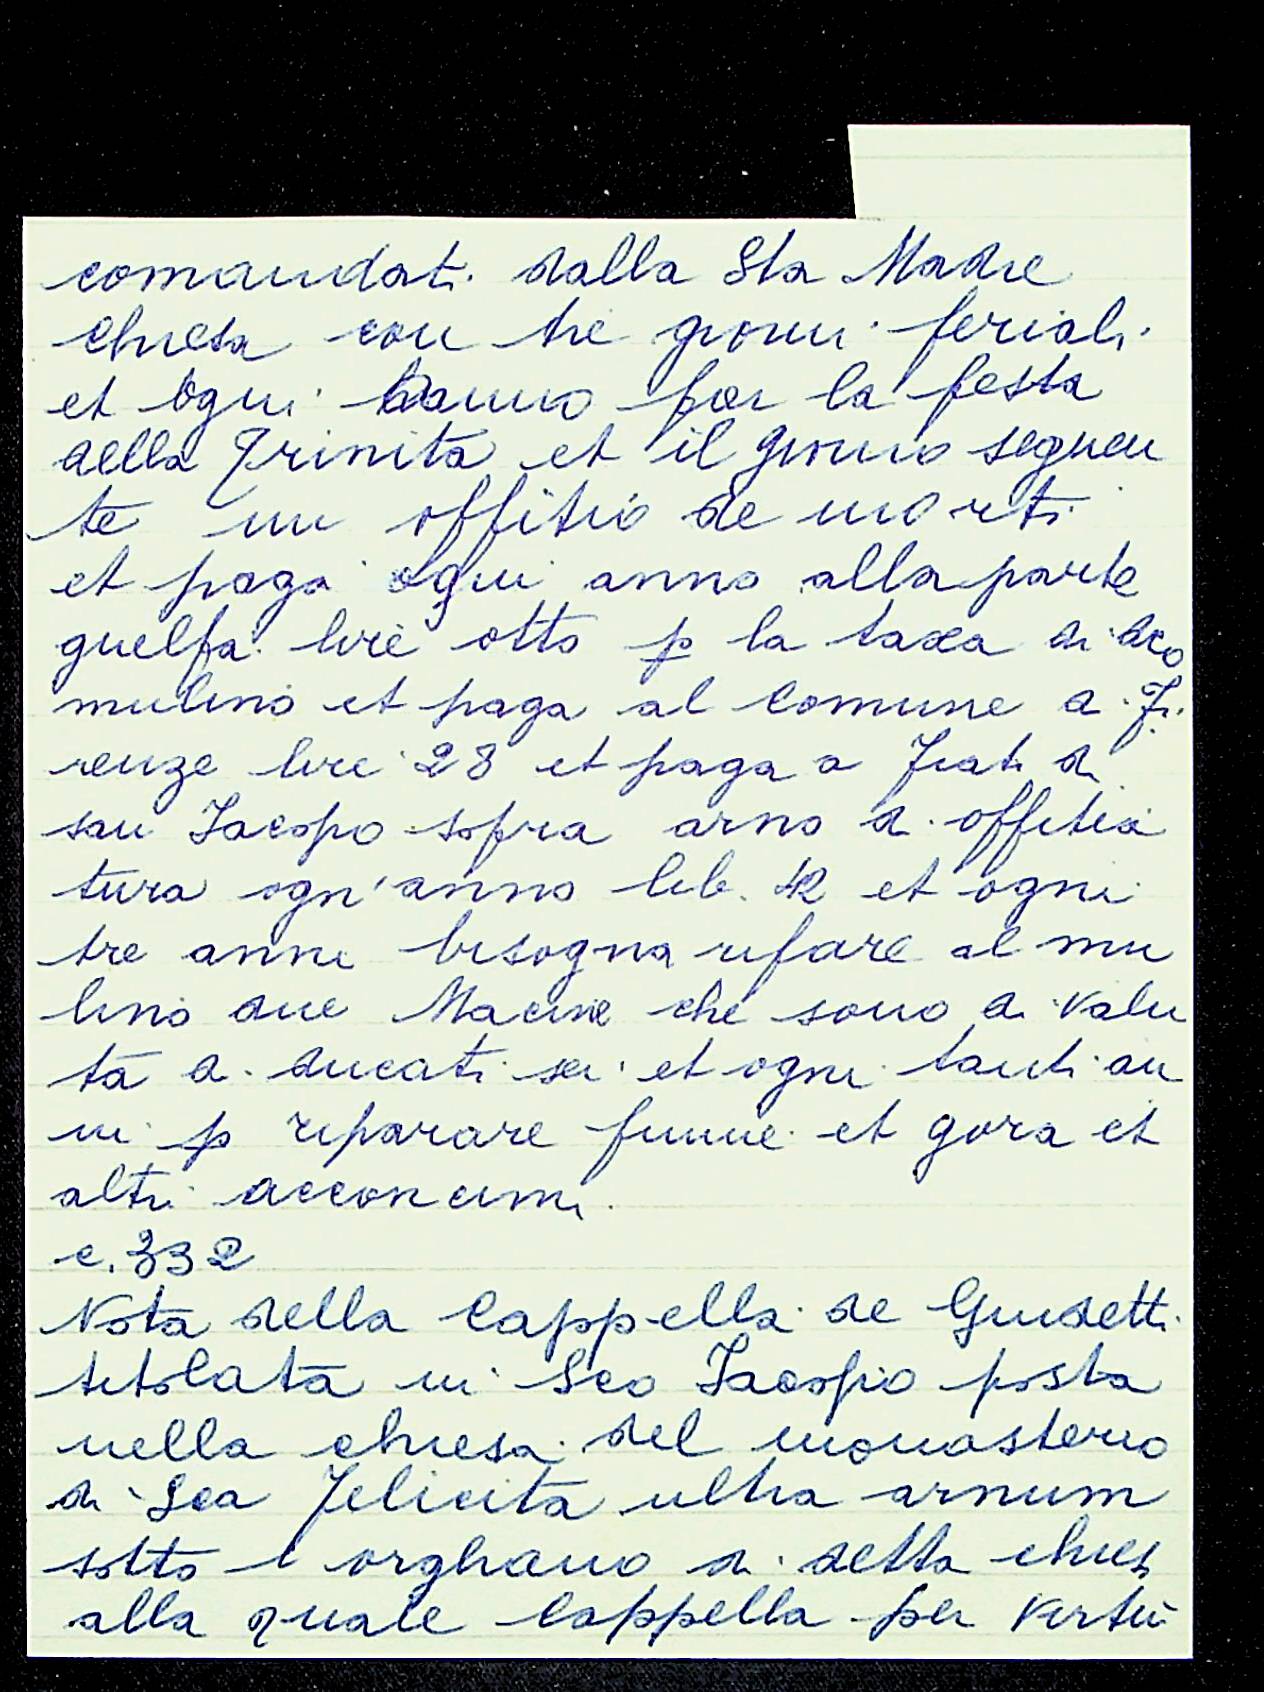 comandati dalla Sta Madre
Chiesa con tre giorni feriali
et ogni hanno per la festa
della Trinità et il giorno seguen
te un offitio de morti
et paga ogni anno alla parte
guelfa lire otto p la taxa di dco
mulino et paga al Comune di Fi
renze lire 28 et paga a Frati di
san Jacopo sopra arno di offitia
tura ogn'anno lib. 42 et ogni
tre anni bisogna rifare al mu
lino due Macine che sono di valu
ta di ducati sei et ogni tanti an
ni p riparare fiume et gora et
altri acconcimi.
c. 332
Nota della Cappella de Guidetti
titolata in Sco Jacopo posta
nella chiesa del monasterio
di Sca Felicita ultra arnum
sotto l orghano di detta chies
alla quale Cappella per virtù